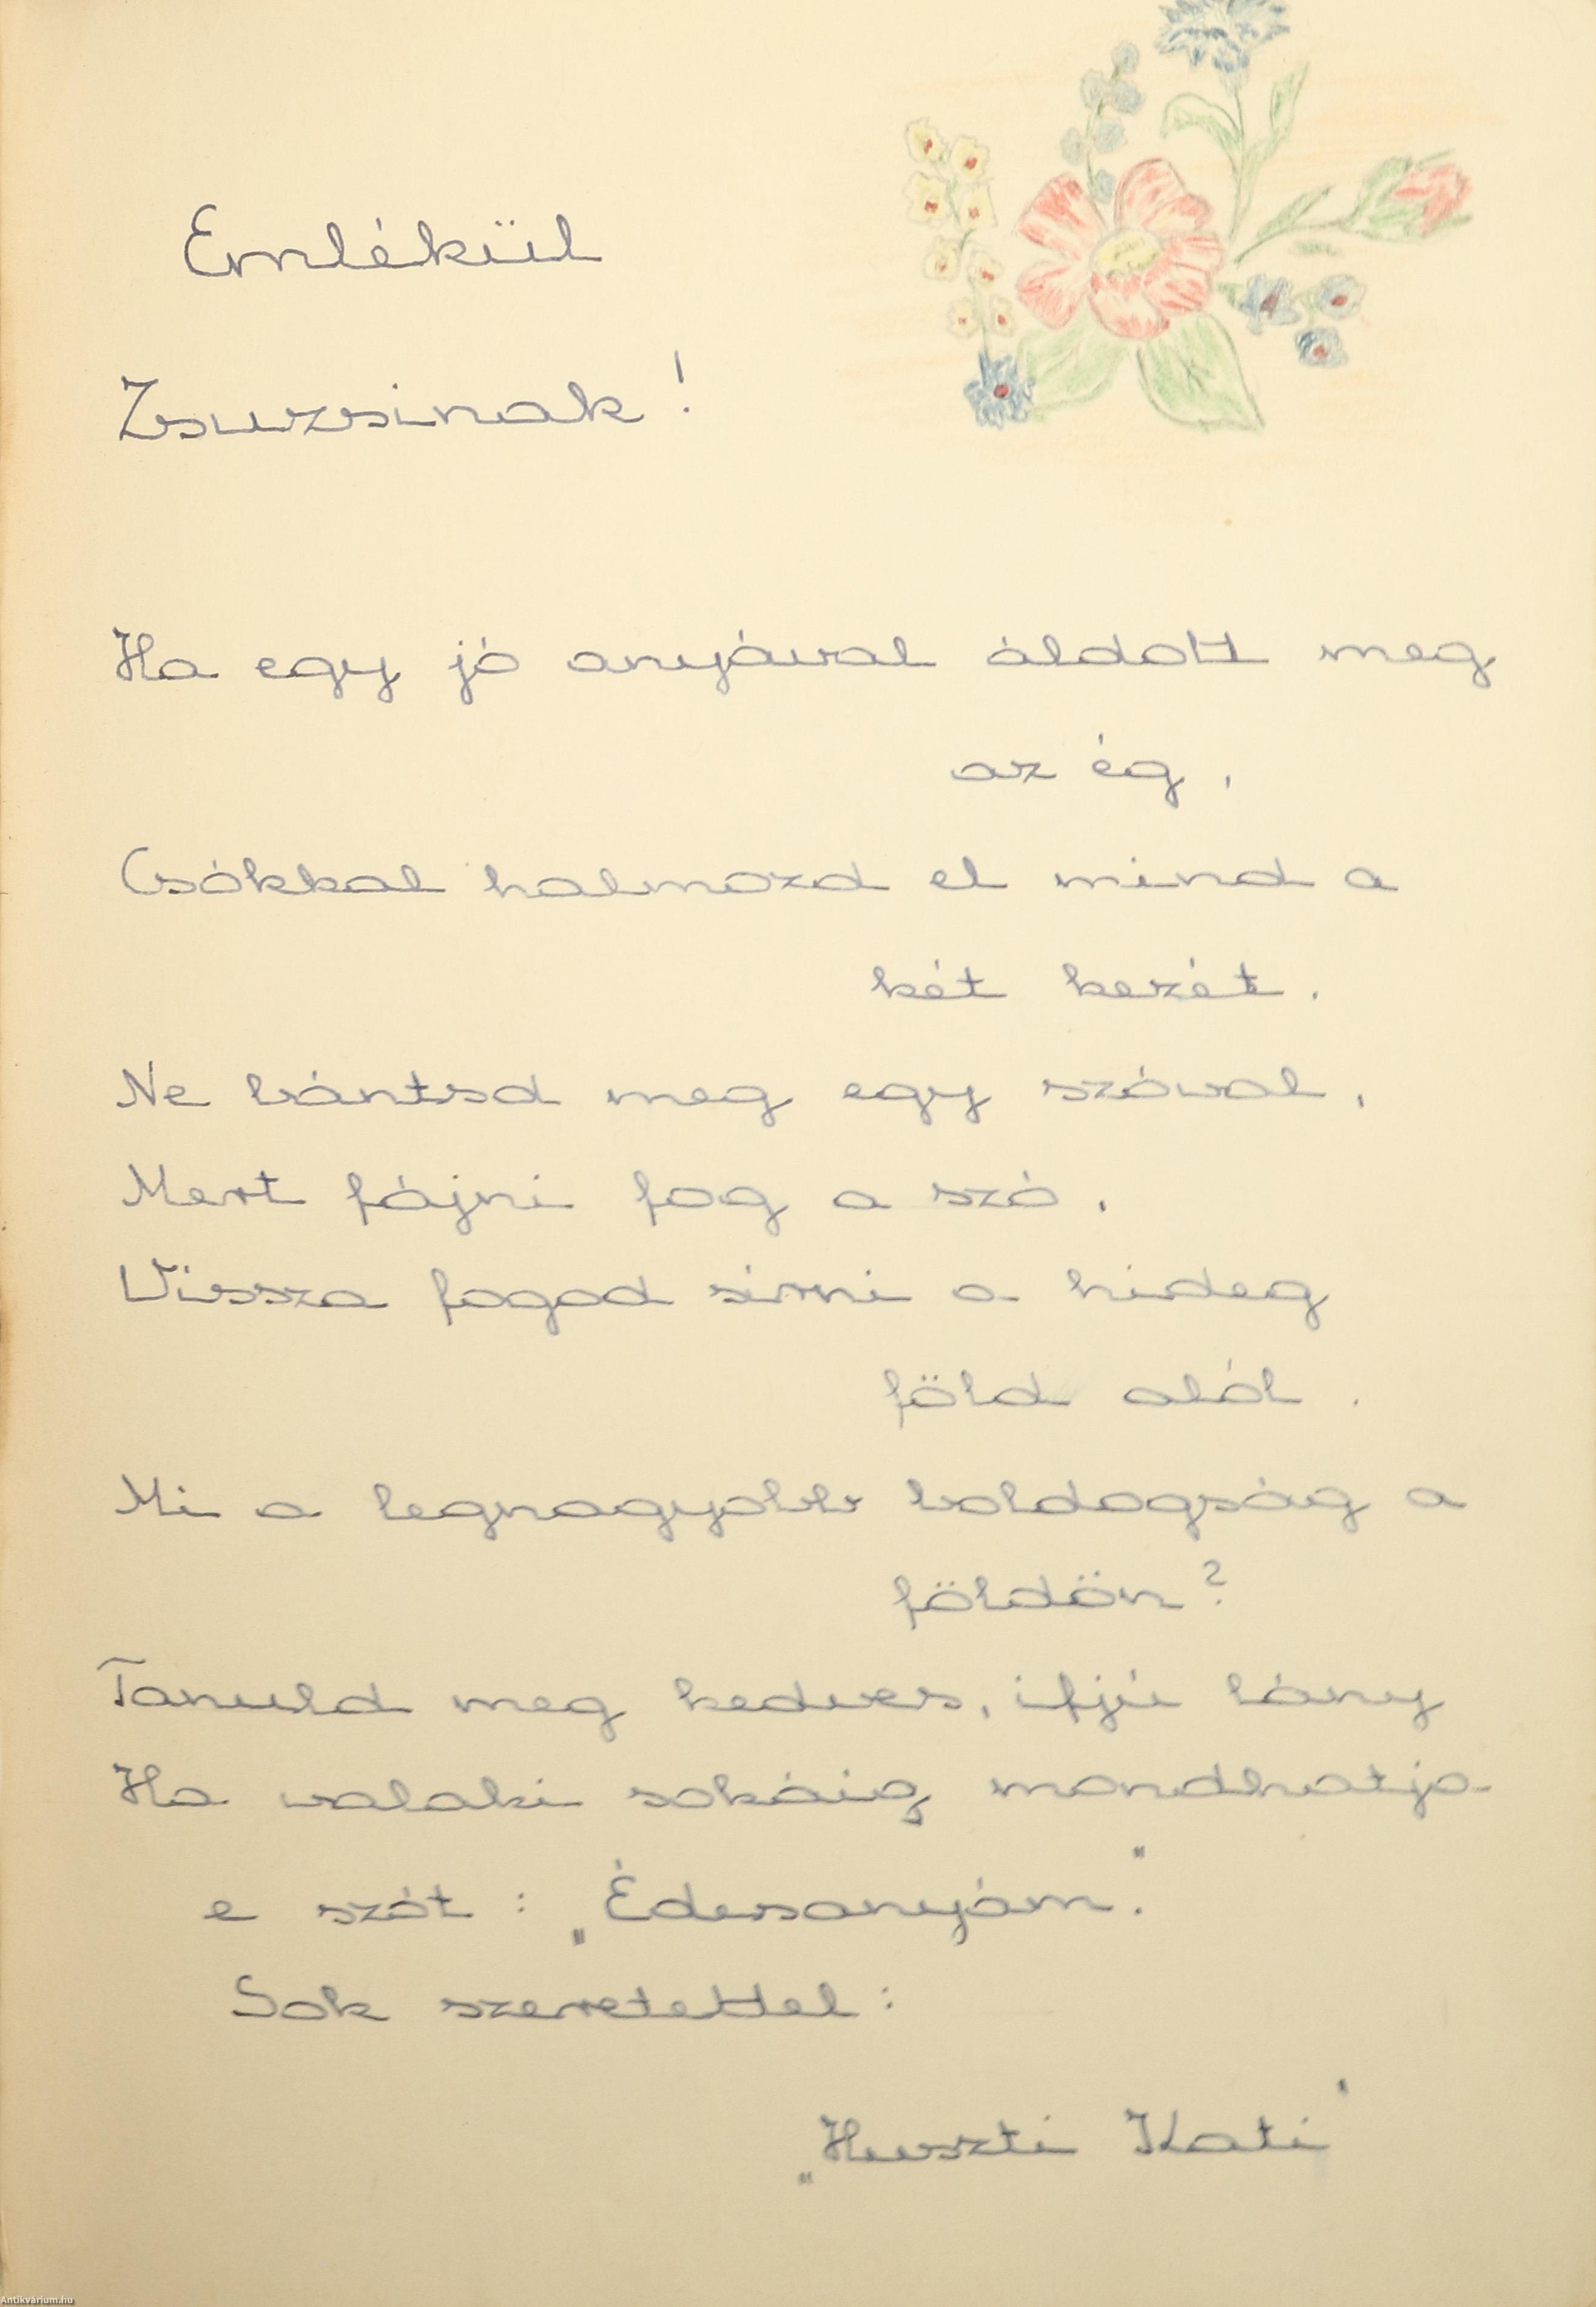 Emlékül
Zsuzsinak!
Ha egy jó anyával áldott meg
az ég,
Csókkal halmozd el mind a
két kezét.
Ne bántsd meg egy szóval,
Mert fájni fog a szó,
Vissza fogod sirni a hideg
föld alól.
Mi a legnagyobb boldogság a
földön?
Tanuld meg kedves, ifjú lány
Ha valaki sokáig mondhatja
e szót: „Édesanyám."
Sok szeretettel:
„Huszti Kati"
Antikvárium.hu